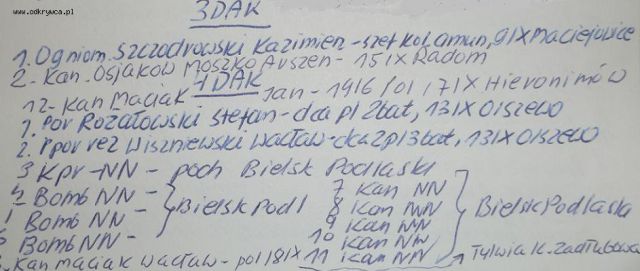 www.odkrywca.pl
3DAK
1. Ogniom. Szczodrowski Kazimierz - szef kol amun, 9 IX Maciejowice
2 - Kan. Osjakow Moszko Arszen - 15 IX Radom
1 DAK
12 - Kan Maciak Jan - 1916/01, 7 IX Hieronimów
1. Por Rozałowski Stefan - dca pl 2bat, 13 IX Olszewo
2. Ppor rez Wiszniewski Wacław - dca 2pl 3bat, 13 IX Olszewo
3 Kpr - NN - poch Bielsk Podlaski
Bomb NN -
Bomb NN -
Bomb NN -
Bielsk Podl
7 Kan NN
8 Kan NN
9 Kan NN
10 Kan NN
11 Kan NN
Bielsk Podlaski
Kan Maciak Wacław - pol 18 IX
Tylwica k. Zabłudowa